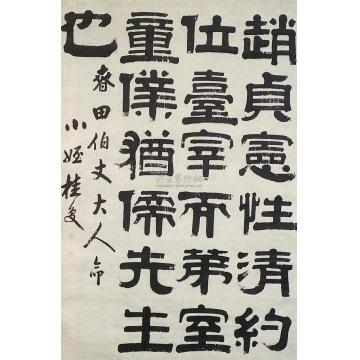 趙貞憲性清約
位臺宰而第室
童僕猶儒先生
也
春田伯丈大人命
小姪桂馥